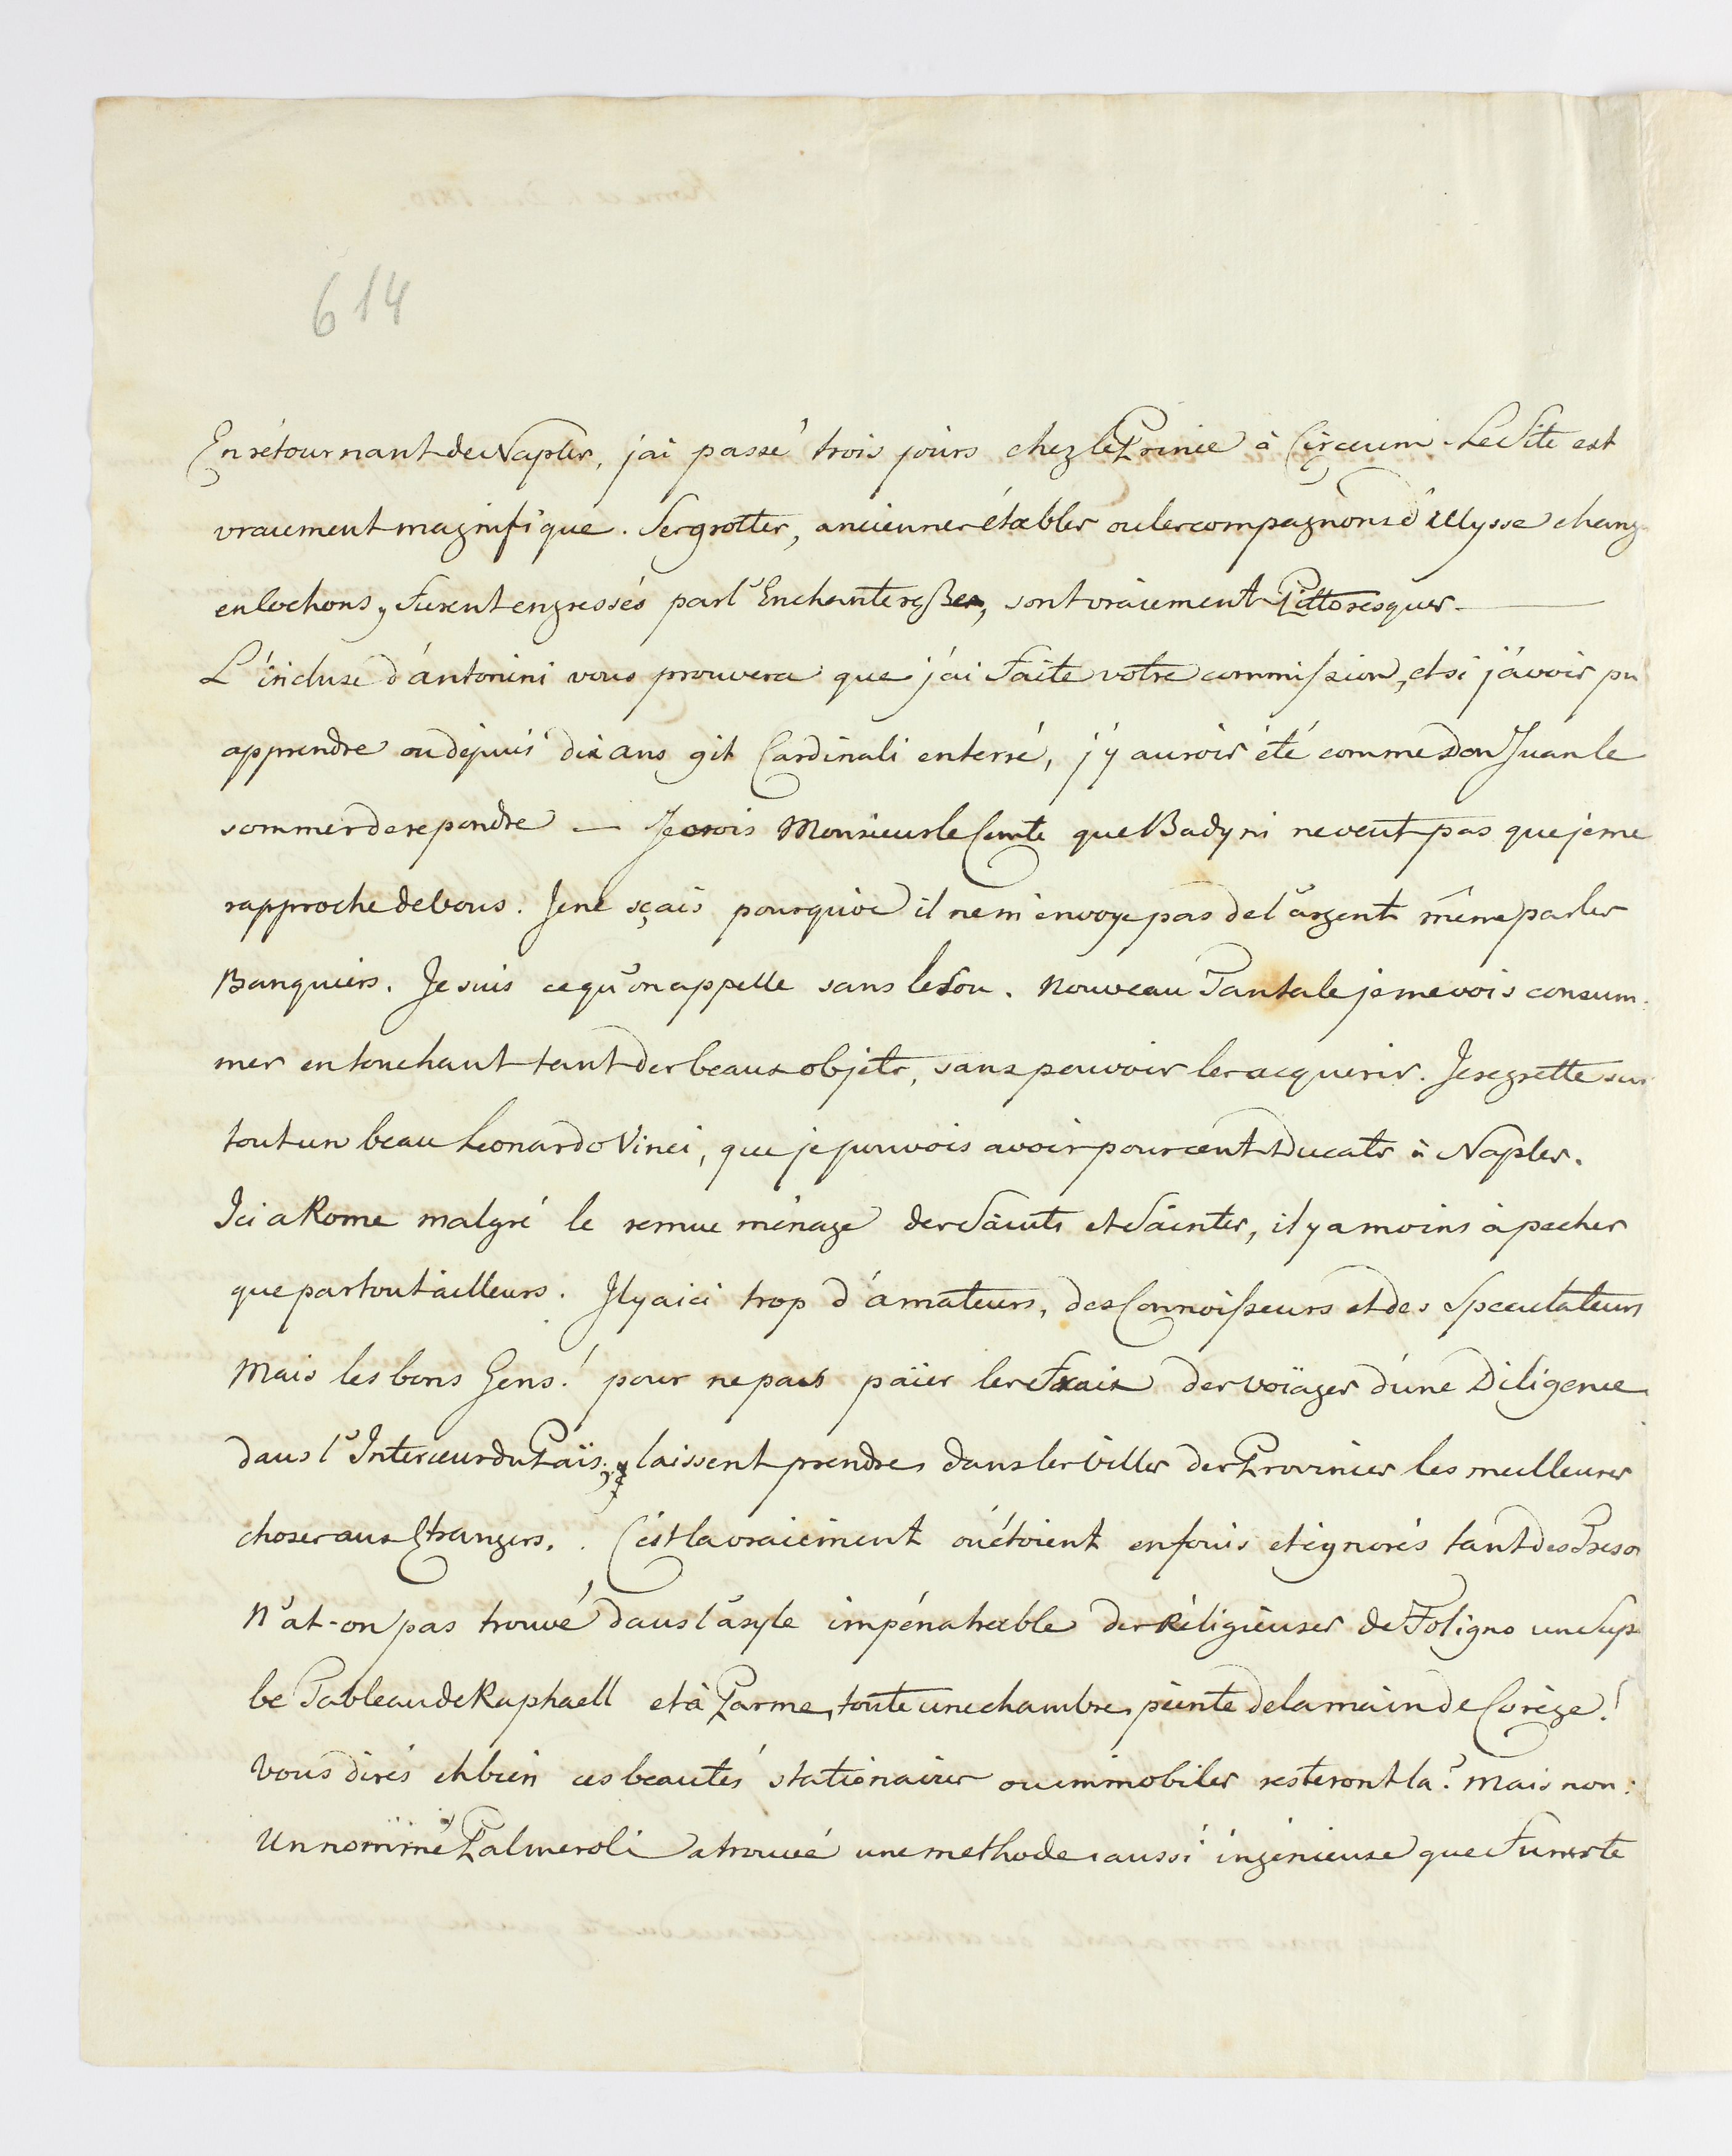 614
En rétournant de Naples, j'ai passé trois jours chez le Prince à Circeum. Le Site est
vraiement magnifique. Ses grottes, anciennes étables ou les compagnons d'Ulysse chang
en Cochons, furent engressés par l'Enchanteresse, sont vraiement Pittoresques —
L'incluse d'Antonini vous prouvera que j'ai faite votre commission, et si j'avois pu
apprendre ou depuis dix ans git Cardinali enterré, j'y aurois été comme Don Juan le
sommer de repondre — Je crois Monsieur le Comte que Badyni ne veut pas que je me
rapproche de Vous. Je ne sçais pourquoi il ne m'envoye pas de l'argent même par les
Banquiers. Je suis ce qu'on appelle sans le Sou. Nouveau Tantale je me vois consum-
mer en touchant tant des beaux objets, sans pouvoir les acquerir. Je regrette sur
tout un beau Leonardo Vinci, que je pouvois avoir pour cent Ducats à Naples.
Ici a Rome malgré le remue ménage des Saints et Saintes, il y a moins à pecher
que partout ailleurs. Il y a ici trop d'amateurs, des Connoisseurs et des Speculateurs
Mais les bons Gens! pour ne pas païer les Frais des voïages d'une Diligence
dans l'Interieur du Païs, laissent prendre dans les Villes des Provinces les meilleures
choses aux Etrangers. C'est la vraiement où étoient enfouis et ignorés tant des Treso
N'at-on pas trouvé dans l'asyle impénatrable des Réligieuses de Foligno un Sup
be Tableau de Raphaell et à Parme, toute une chambre peinte de la main de Corège!
Vous dirés eh bien ces beautés stationaires ou immobiles resteront la? Mais non:
Un nommé Palmeroli a trouvé une methode aussi ingénieuse que Funeste